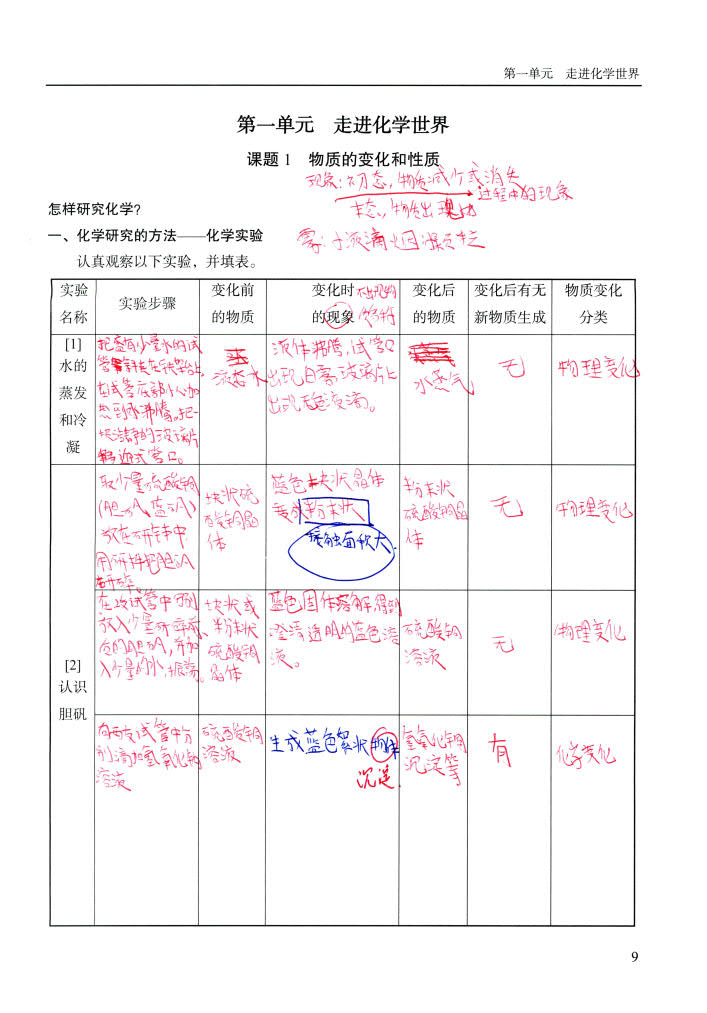 第一单元 走进化学世界
第一单元 走进化学世界
课题 1 物质的变化和性质
现象:初态,物质减少或消失
过程中的现象
末态,物质出现
怎样研究化学?
一、化学研究的方法——化学实验
雾:小液滴
认真观察以下实验,并填表。
实验名称
实验步骤
变化前的物质
变化时的现象
变化后的物质
变化后有无新物质生成
物质变化分类
[1]
水的
蒸发
和冷
凝
把盛有少量水的试
在试管底部小心加
热到水沸腾。把一
块洁净的玻璃片
移近试管口。
液态水
液体沸腾,试管口
出现白雾,玻璃片上
出现无色液滴。
水蒸气
无
物理变化
[2]
认识
胆矾
取少量硫酸铜
放在研钵中
用研杵把胆矾
研碎。
块状硫
酸铜晶
体
蓝色块状晶体
变成粉末状
接触面积大
粉末状
硫酸铜晶
体
无
物理变化
在2支试管中分别
放入少量研碎前
后的胆矾,并加
入少量的水,振荡。
块状或
粉末状
硫酸铜
晶体
蓝色固体溶解,得到
澄清透明的蓝色溶
液。
硫酸铜
溶液
无
物理变化
向两支试管中分
别滴加氢氧化钠
溶液
硫酸铜
溶液
生成蓝色絮状物体
沉淀
氢氧化铜
沉淀等
有
化学变化
9